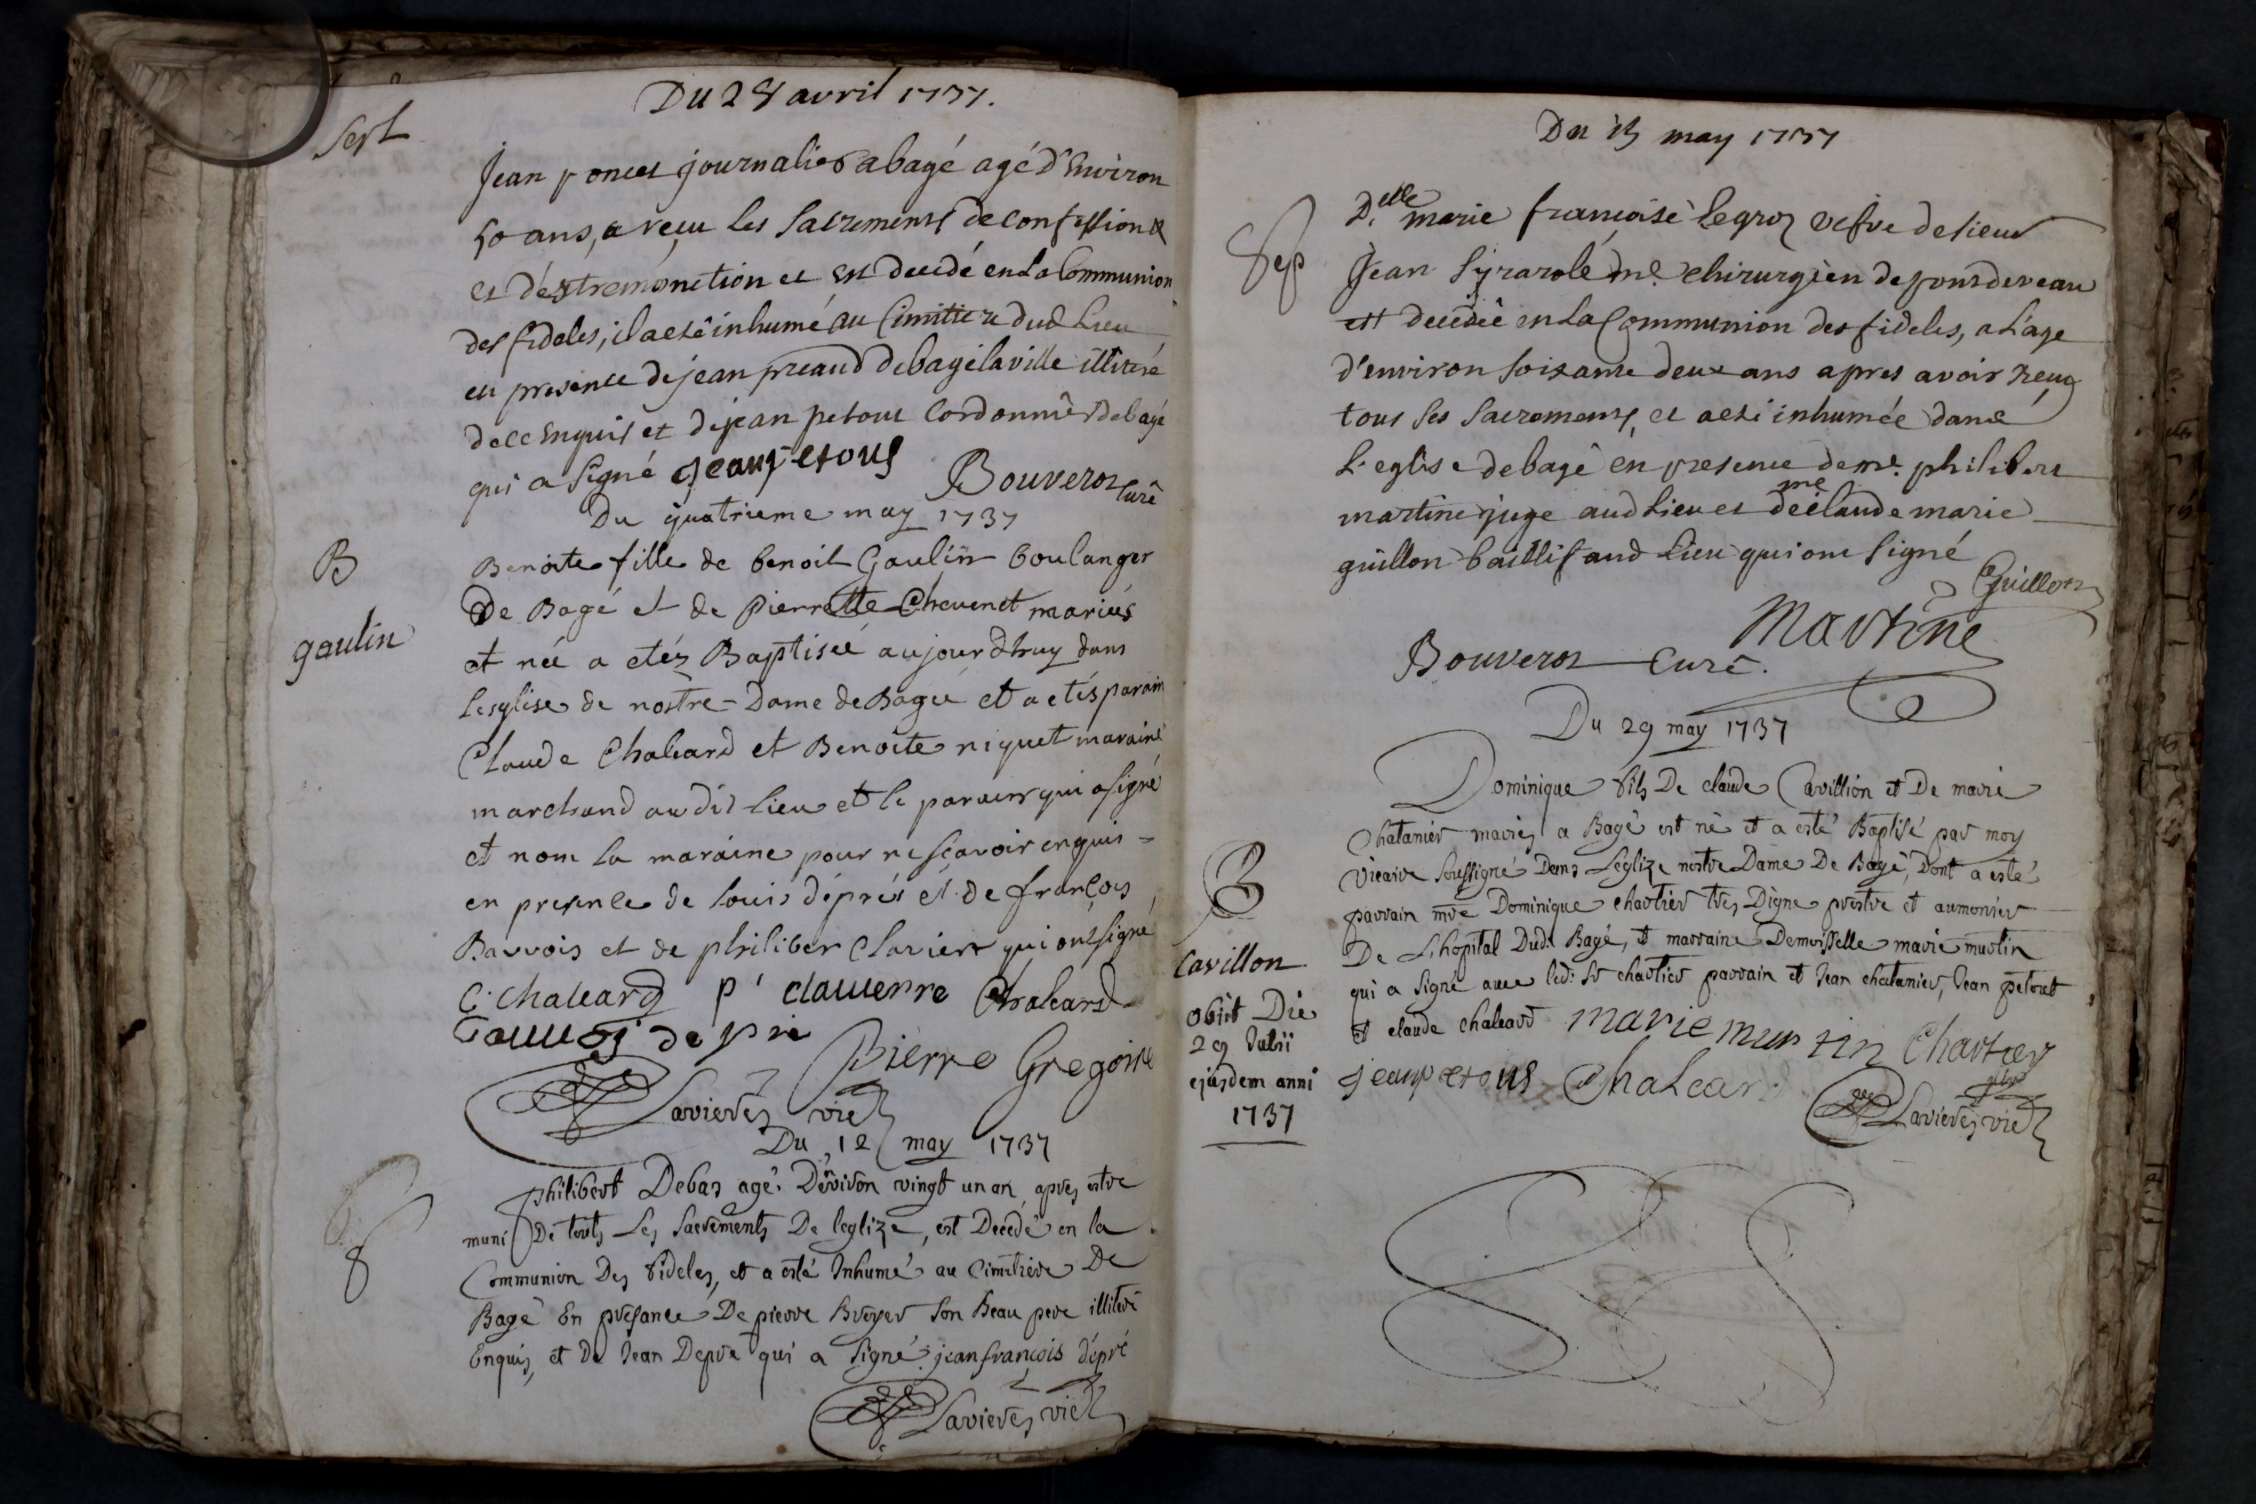 Du 28 avril 1737.
Sept
Jean poncet journalier a bagé agé d'Environ
50 ans, a reçu les Sacrements de confession &
et d'éxtremonction et est decedé en la Communion
des fideles; il a eté inhumé au Cimitiere dud Lieu
en presence de jean preaud de bagé la ville illitéré
de ce Enquis et de jean petout Cordonnier de bagé
qui a signé jean petous
Bouveron Curé
Du quatrieme may 1737
B
gaulin
Benoite fille de benoit Gaulin boulanger
De Bagé et de Pierrette Chevenet mariés
et née a etéz Baptiseé aujourdhuy dans
Lesglise de nostre-Dame de Bageé et a etés parain
Claude Chaleard et Benoite niquet maraine
marchand au dit lieu et le parain qui a signé
et nom la maraine pour ne sçavoir enquis =
en presence de Louis déprés et de françois
Bavvois et de philiber Clavier qui ont signé
C. chaleard p' clauierre Chaleard
de pré
Pierre Gregoire
Lavieres vic
Du 12 may 1737
S
philibert Debas agé D'environ vingt un an apres estre
muni De touts Les Sacrements De leglize, est Decedé en la
Communion Des fideles, et a esté Inhumé au Cimetière De
Bagé En presance De pierre Broyer son Beau pere illiteré
Enquis, et De Jean Depré qui a signé jean françois dépré
Lavieres vic
Du 15 may 1737
Sep
D.elle marie francoise Legroz vefve de sieur
Jean Syrarolé me. chirurgien de pontdeveau
est decedeé en la Communion des fideles, a Lage
d'environ soixante deux ans apres avoir reçu
tous ses Sacremens, et a eté inhumée dans
L'eglise de bagé en presence de me. philibert
martine juge aud Lieu et de me claude marie
guillon baillif aud Lieu qui ont signé
Guillon
Martine
Bouveron Curé.
Du 29 may 1737
B
Cavillon
obiit Die
29 Julii
ejusdem anni
1737
Dominique fils De claude Cavillion et De marie
Chatanier mariés a Bagé est né et a esté Baptisé par moy
Vicaire soussigné Dans Leglize nostre Dame De Bagé, Dont a esté
parrain mre Dominique chartier tres Digne prestre et aumonier
De L'hopital Dud. Bagé, et marraine Demoisselle marie murtin
qui a signé avec led: sr chartier parrain et Jean chatanier, Jean petout
et claude chaleard marie murtin Chartier
jean petous Chalear
Lavieres vic